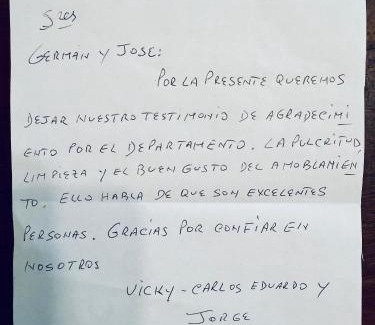 Sres
GERMAN Y JOSE:
POR LA PRESENTE QUEREMOS
DEJAR NUESTRO TESTIMONIO DE AGRADECIMI
ENTO POR EL DEPARTAMENTO. LA PULCRITUD,
LIMPIEZA Y EL BUEN GUSTO DEL AMOBLAMIEN
TO. ELLO HABLA DE QUE SON EXCELENTES
PERSONAS. GRACIAS POR CONFIAR EN
NOSOTROS
VICKY-CARLOS EDUARDO Y
JORGE